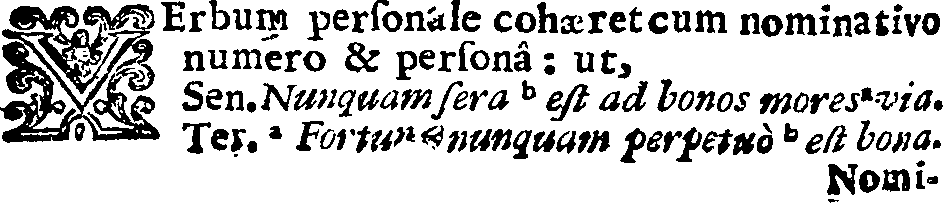 VErbum personále cohæret cum nominativo
numero & personâ : ut,
Sen. Nunquam sera ᵇ est ad bonos mores ᵃ via.
Ter. ᵃ Fortuna nunquam perpetuò ᵇ est bona.
Nomi-